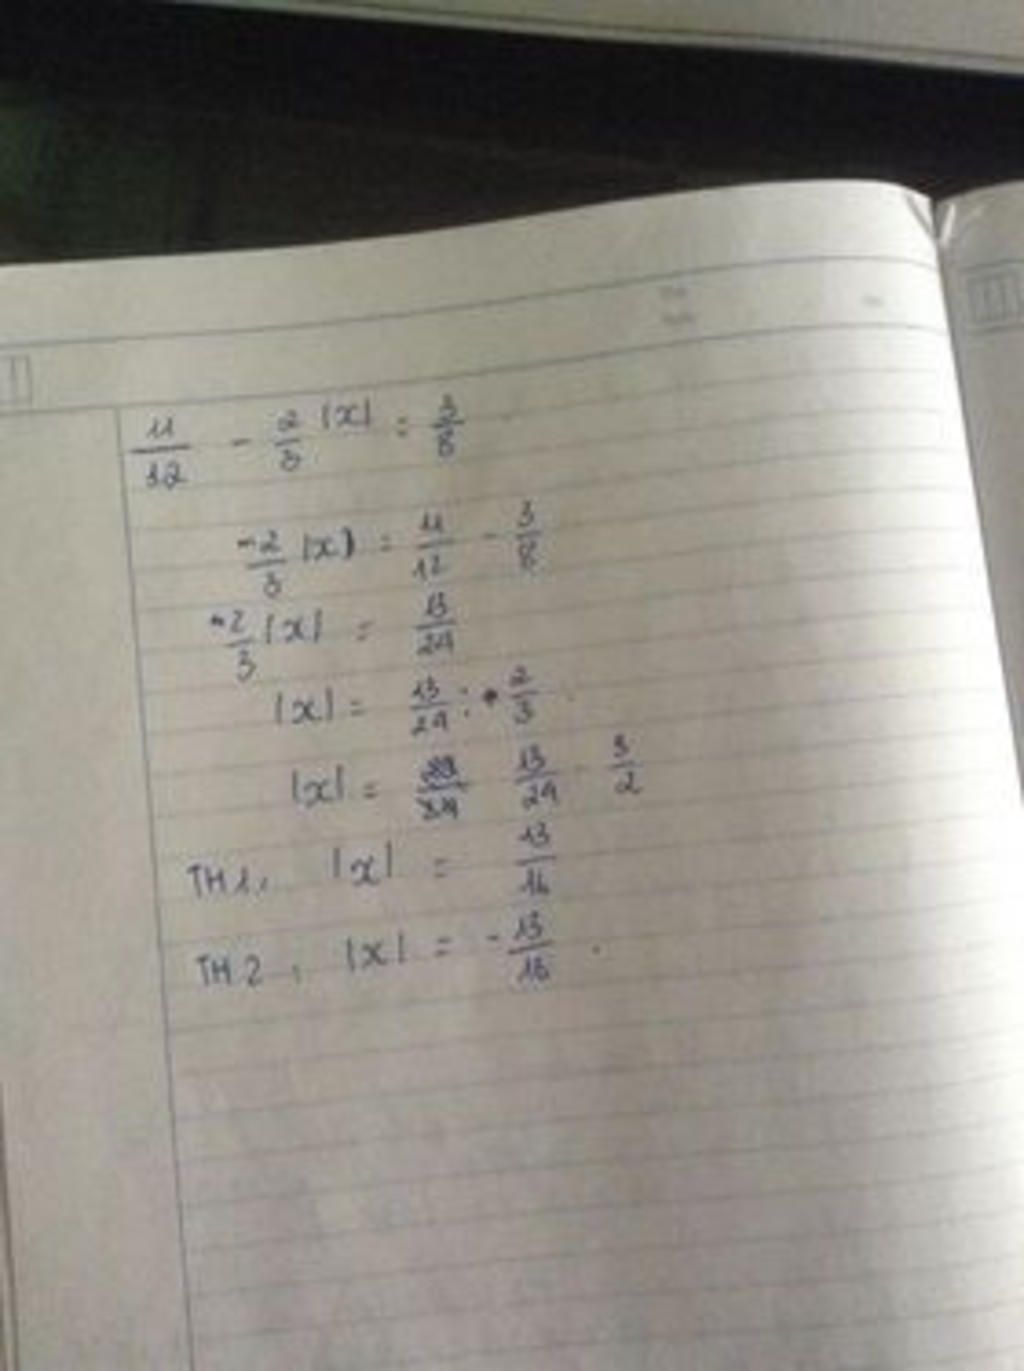 11/12 - 2/3 |x| = 3/8
2/3 |x| = 11/12 - 3/8
2/3 |x| = 13/24
|x| = 13/24 : 2/3
|x| = 13/24 . 3/2
TH1, |x| = 13/16
TH2, |x| = -13/16.